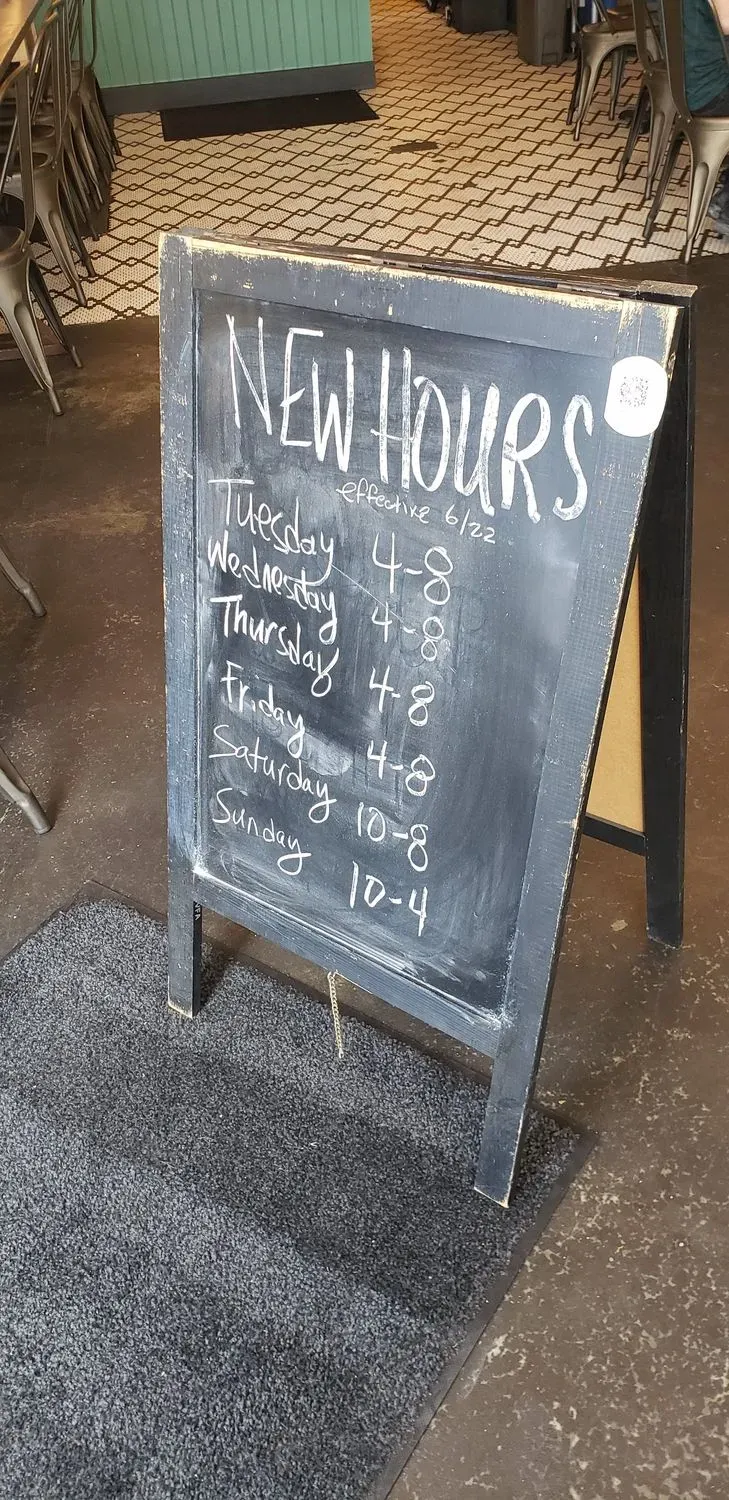 NEW HOURS
effective 6/22
Tuesday 4-8
Wednesday 4-8
Thursday 4-8
Friday 4-8
Saturday 10-8
Sunday 10-4